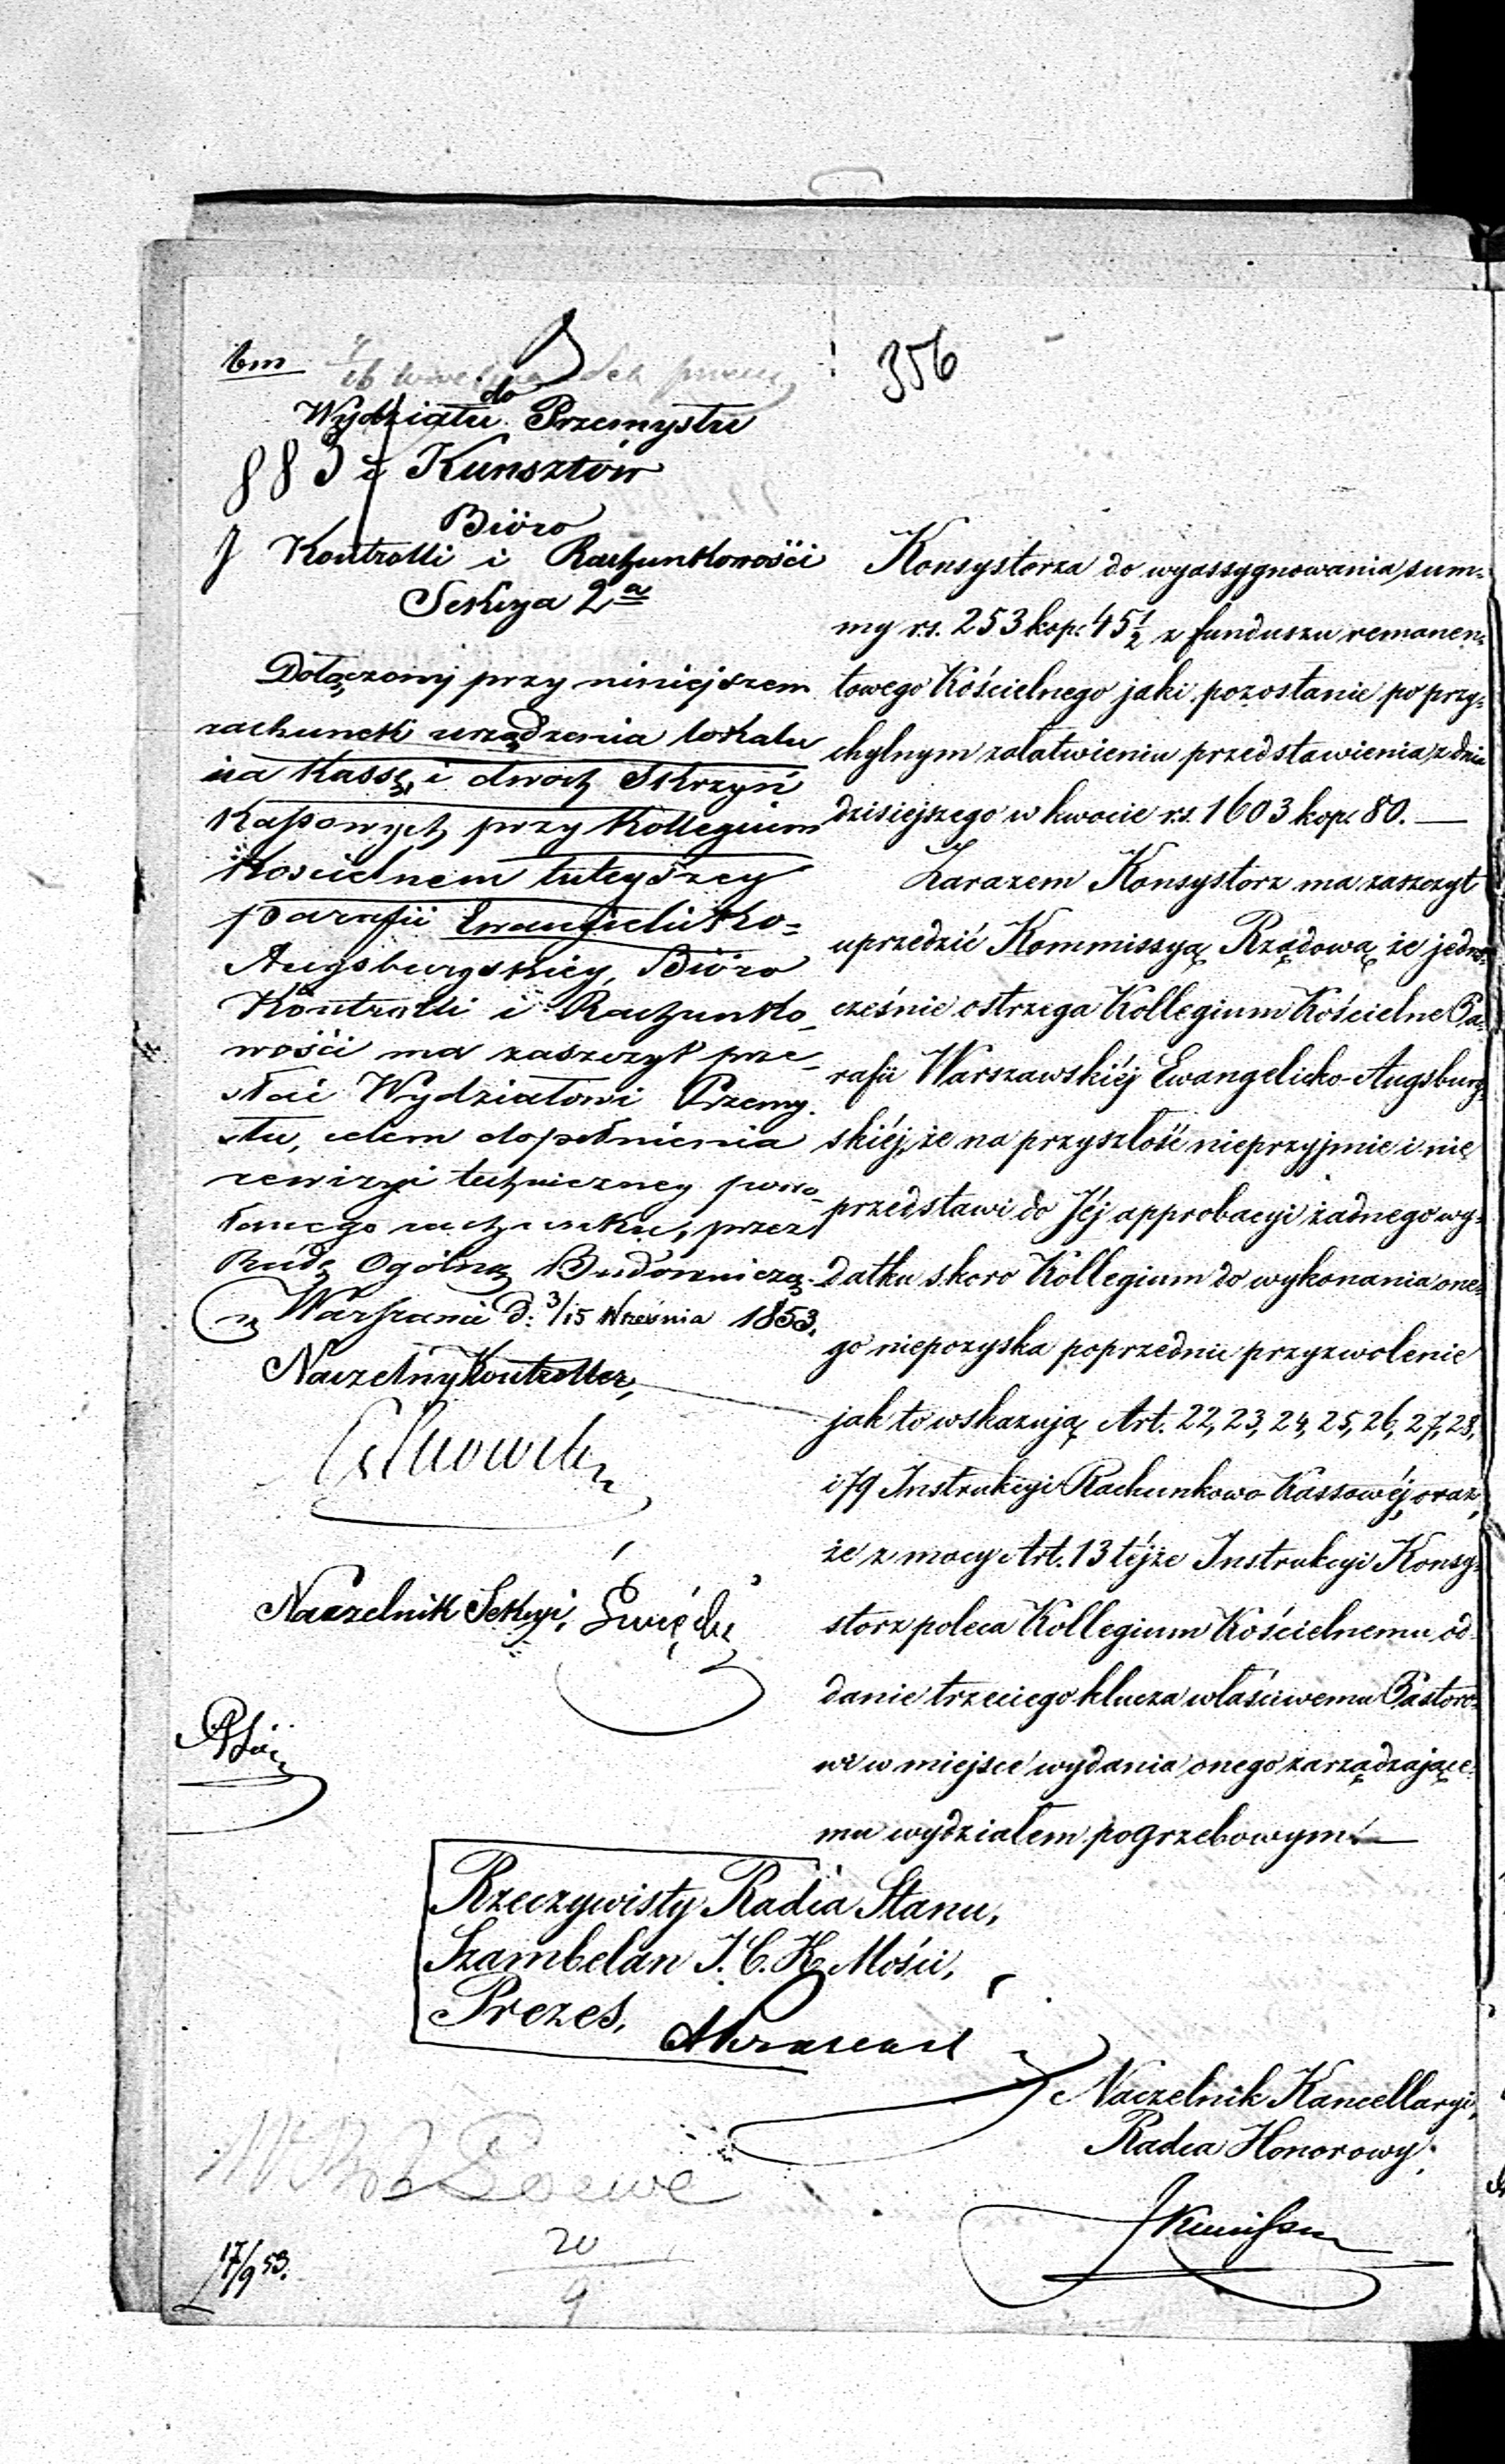 356
bm
do
Wydziału Przemysłu
883 i Kunsztów
Bióro
Kontrolli i Rachunkowości
Sekcya 2a
Dołączony przy niniejszem
rachunek urządzenia lokalu
na Kassę i dwóch Skrzyń
Kassowych przy Kollegium
Kościelnem tuteyszey
parafii Ewangielicko=
Augsburgskiey, Bióro
Kontrolli i Rachunko_
wości ma zaszczyt prze_
słać Wydziałowi Przemy_
słu, celem dopełnienia
rewizyi techniczney powo_
łanego rachunku, przez
Radę Ogólną Budowniczą.
w Warszawie d: 3/15 Września 1853.
Naczelny Kontroller,
Naczelnik Sekcyi, Święcki
Konsystorza do wyassygnowania sum=
my rs. 253 kop. 45 1/2 z funduszu remanen=
towego Kościelnego jaki pozostanie po przy=
chylnym załatwieniu przedstawienia z dnia
dzisiejszego w kwocie rs. 1603 kop. 80. —
Zarazem Konsystorz ma zaszczyt
uprzedzić Kommissyą Rządową że jedno=
cześnie ostrzega Kollegium Kościelne Pa=
rafii Warszawskiéj Ewangelicko-Augsburg=
skiéj, że na przyszłość nieprzyjmie i nie
przedstawi do Jéj approbacyi żadnego wy=
datku skoro Kollegium do wykonania one=
go niepozyska poprzednie przyzwolenie
jak to wskazują Art. 22, 23, 24, 25, 26, 27, 28,
i 79 Instrukcyi Rachunkowo Kassowéj, oraz,
że z mocy Art. 13 téjże Instrukcyi Konsy=
storz poleca Kollegium Kościelnemu od=
danie trzeciego klucza właściwemu Pastoro=
wi w miejsce wydania onego zarządzające=
mu wydziałem pogrzebowym. —
Rzeczywisty Radca Stanu,
Szambelan J. C. K. Mości,
Prezes,
Naczelnik Kancellaryi,
Radca Honorowy,
Loewe
20
9
17/9 53.